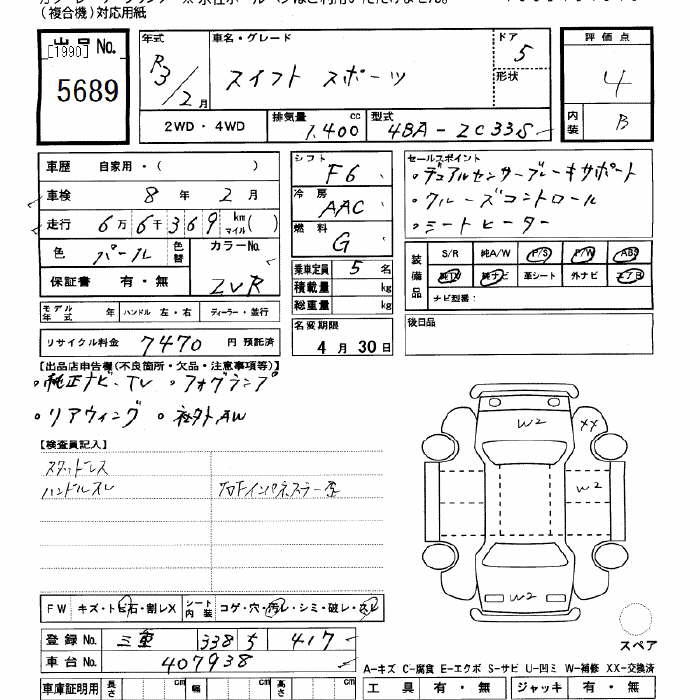 (複合機)対応用紙
出品 No.
[1990]
5689
年式 R3/2月
車名・グレード スイフト スポーツ
ドア 5
形状
評価点 4
内装 B
2WD・4WD
排気量 1,400 cc
型式 4BA-ZC33S
車歴 自家用・( )
車検 8年2月
走行 6万6千369 km マイル( )
色 パール 色替
カラーNo. ZVR
保証書 有・無
モデル年式 年 ハンドル 左・右 ディーラー・並行
リサイクル料金 7470 円 預託済
シフト F6
冷房 AAC
燃料 G
乗車定員 5 名
積載量 kg
総重量 kg
名変期限
4月30日
セールスポイント
・デュアルセンサーブレーキサポート
・クルーズコントロール
・シートヒーター
装備品
S/R 純A/W P/S P/W ABS
純ナビ 革シート 外ナビ エアB
ナビ型番:
後日品
【出品店申告欄(不良箇所・欠品・注意事項等)】
・純正ナビ・TV ・フォグランプ
・リアウィング ・社外AW
【検査員記入】
スタッドレス
ハンドルスレ
FW キズ・トビ石・割レX シート内装 コゲ・穴・汚レ・シミ・破レ・スレ
登録 No. 三重 338 5 417
車台 No. 407938
車庫証明用 長さ cm 幅 cm 高さ cm
W2
XX
W2
W2
スペア
A-キズ C-腐食 E-エクボ S-サビ U-凹ミ W-補修 XX-交換済
工具 有・無 ジャッキ 有・無